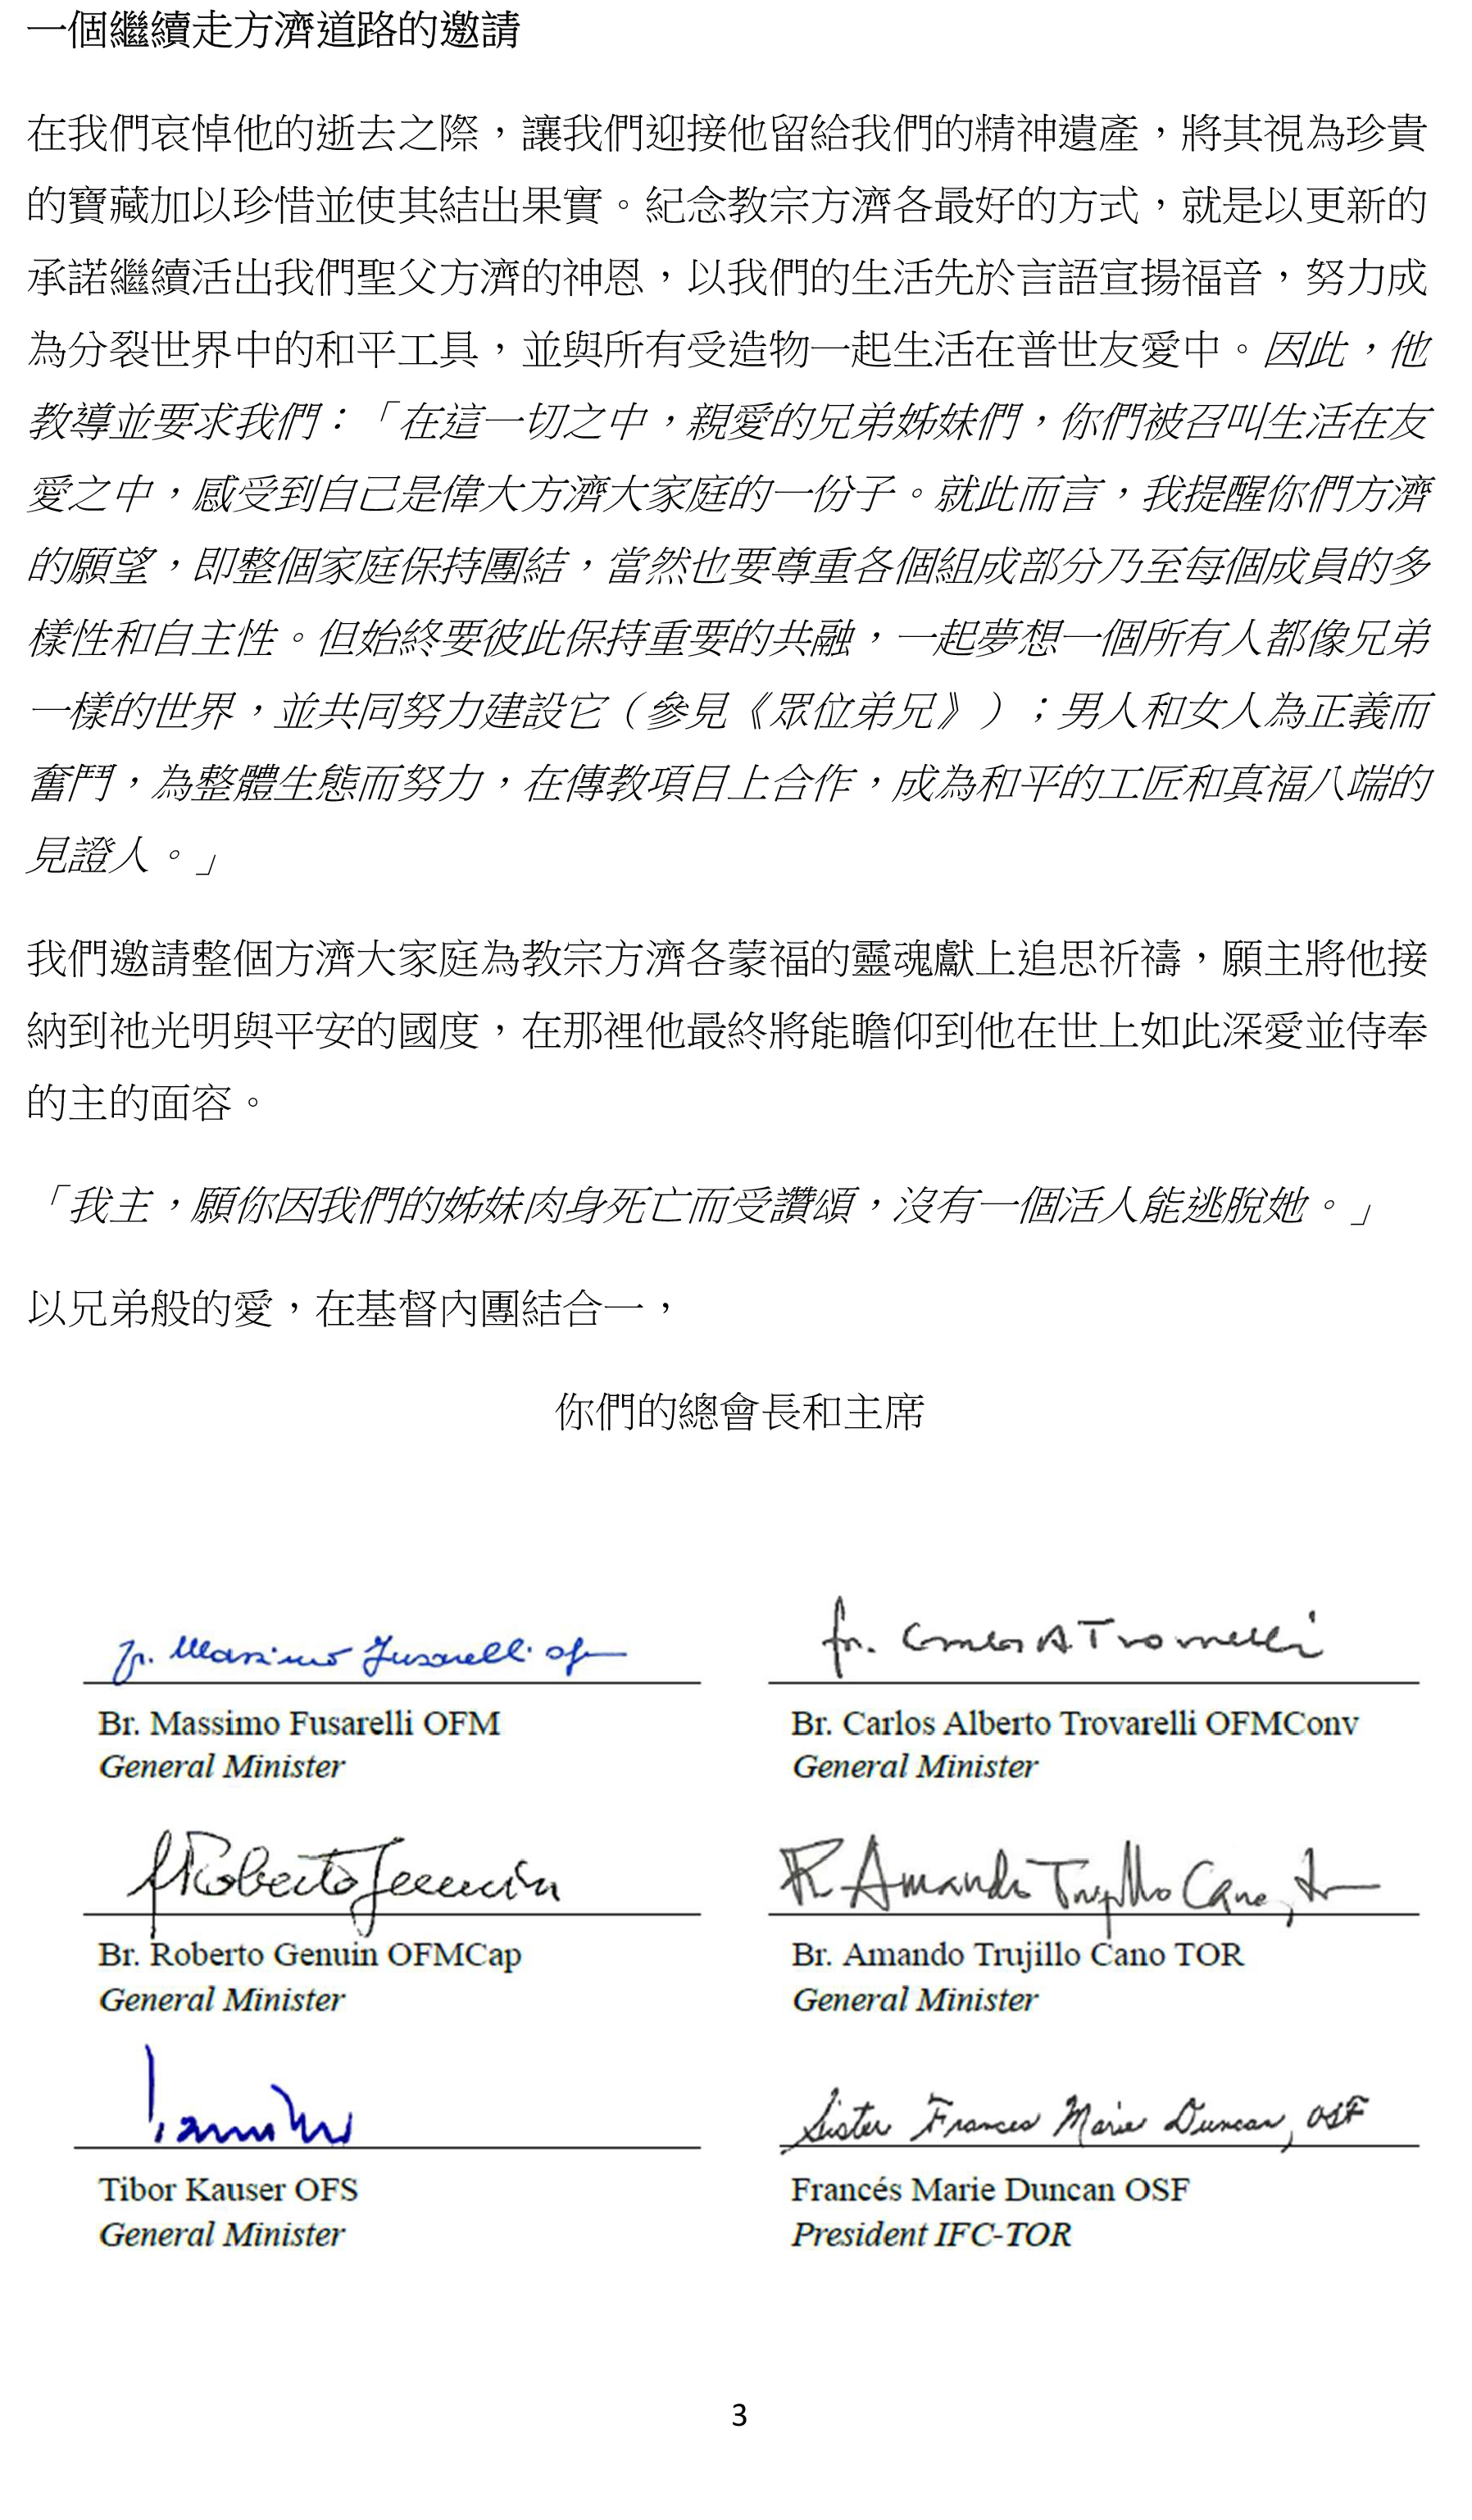 一個繼續走方濟道路的邀請
在我們哀悼他的逝去之際，讓我們迎接他留給我們的精神遺產，將其視為珍貴
的寶藏加以珍惜並使其結出果實。紀念教宗方濟各最好的方式，就是以更新的
承諾繼續活出我們聖父方濟的神恩，以我們的生活先於言語宣揚福音，努力成
為分裂世界中的和平工具，並與所有受造物一起生活在普世友愛中。因此，他
教導並要求我們：「在這一切之中，親愛的兄弟姊妹們，你們被召叫生活在友
愛之中，感受到自己是偉大方濟大家庭的一份子。就此而言，我提醒你們方濟
的願望，即整個家庭保持團結，當然也要尊重各個組成部分乃至每個成員的多
樣性和自主性。但始終要彼此保持重要的共融，一起夢想一個所有人都像兄弟
一樣的世界，並共同努力建設它（參見《眾位弟兄》）；男人和女人為正義而
奮鬥，為整體生態而努力，在傳教項目上合作，成為和平的工匠和真福八端的
見證人。」
我們邀請整個方濟大家庭為教宗方濟各蒙福的靈魂獻上追思祈禱，願主將他接
納到祂光明與平安的國度，在那裡他最終將能瞻仰到他在世上如此深愛並侍奉
的主的面容。
「我主，願你因我們的姊妹肉身死亡而受讚頌，沒有一個活人能逃脫她。」
以兄弟般的愛，在基督內團結合一，
你們的總會長和主席
fr. Massimo Fusarelli ofm
fr. Carlos A Trovarelli
Br. Massimo Fusarelli OFM
Br. Carlos Alberto Trovarelli OFMConv
General Minister
General Minister
Roberto Genuin
Amando Trujillo Cano,
Br. Roberto Genuin OFMCap
Br. Amando Trujillo Cano TOR
General Minister
General Minister
Sister Frances Marie Duncan, OSF
Tibor Kauser OFS
Francés Marie Duncan OSF
General Minister
President IFC-TOR
3